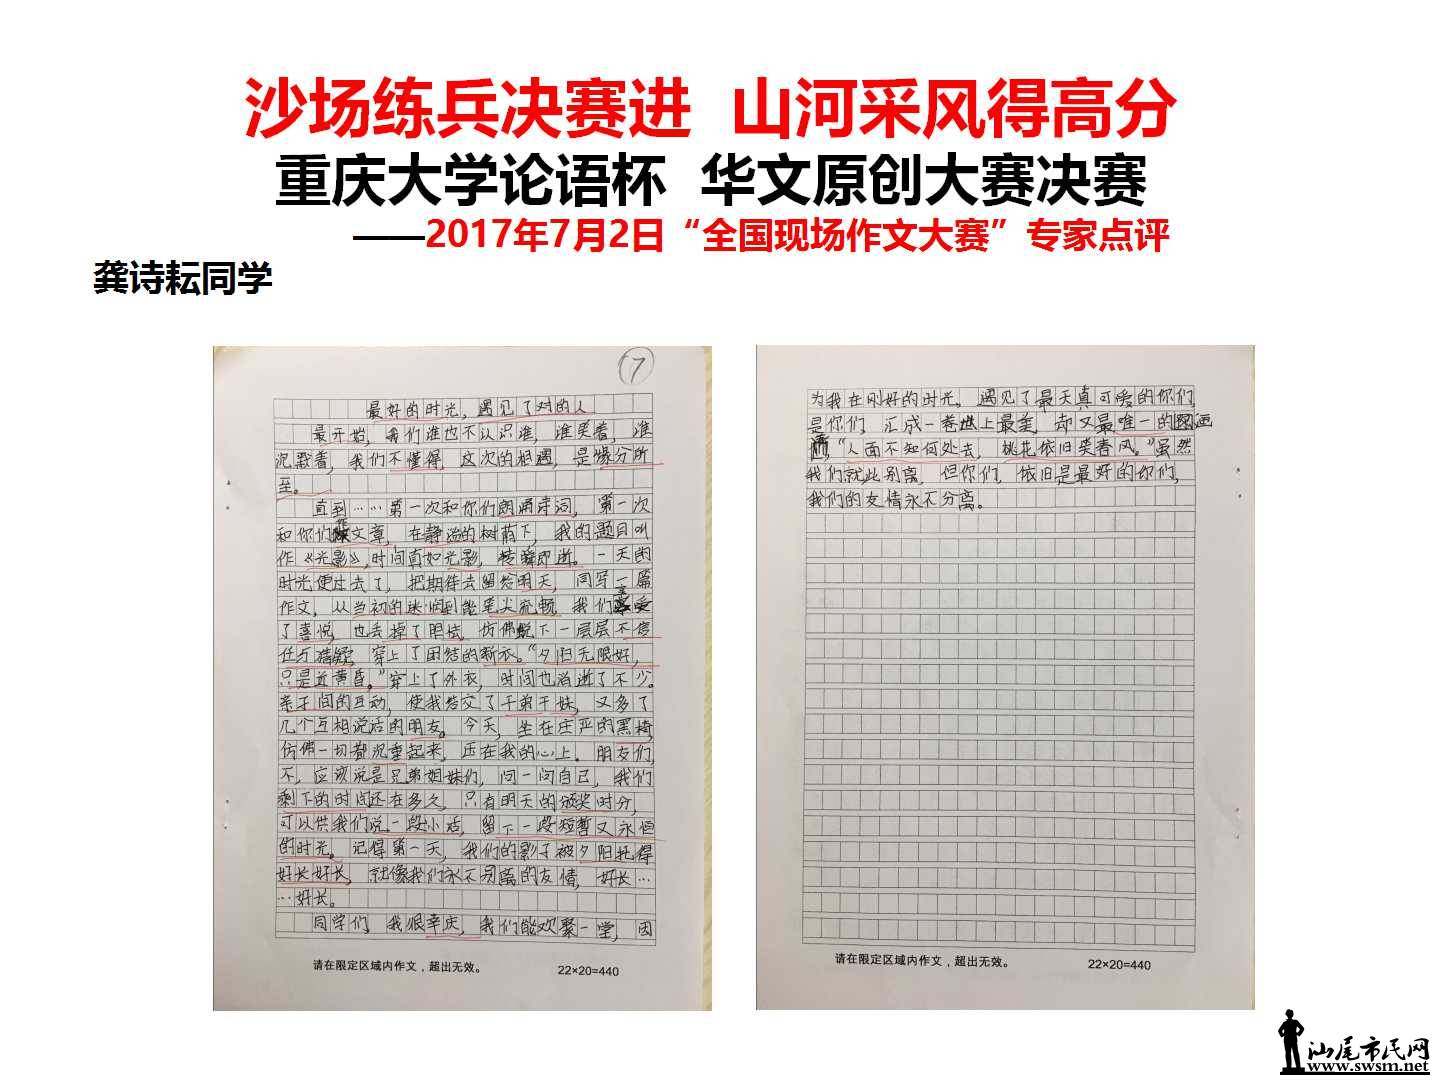 沙场练兵决赛进 山河采风得高分
重庆大学论语杯 华文原创大赛决赛
——2017年7月2日“全国现场作文大赛”专家点评
龚诗耘同学
17
最好的时光,遇见了对的人
最开始,我们谁也不认识谁,谁笑着,谁
沉默着,我们不懂得,这次的相遇,是缘分所
至。
直到……第一次和你们朗诵诗词,第一次
和你们作文章,在静谧的树荫下,我的题目叫
作《光影》,时间真如光影,转瞬即逝。一天的
时光便过去了,把期待去留给明天,同写一篇
作文,从当初的迷惘到能笔尖流畅,我们享受
了喜悦,也丢掉了胆怯。仿佛脱下一层层不信
任与猜疑,穿上了团结的新衣。“夕阳无限好,
只是近黄昏。”穿上了外衣,时间也消逝了不少。
亲子间的互动,使我结交了干弟干妹,又多了
几个互相说话的朋友。今天,坐在庄严的黑椅,
仿佛一切都沉重起来,压在我的心上。朋友们,
不,应该说是兄弟姐妹们,问一问自己,我们
剩下的时间还在多久,只有明天的颁奖时分,
可以供我们说一段小话,留下一段短暂又永恒
的时光。记得第一天,我们的影子被夕阳托得
好长好长,就像我们永不分离的友情,好长…
…好长。
同学们,我很幸庆,我们能欢聚一堂,因
请在限定区域内作文,超出无效。
22×20=440
为我在刚好的时光,遇见了最天真可爱的你们,
是你们,汇成一卷世上最美,却又最唯一的图画
“人面不知何处去,桃花依旧笑春风。”虽然
我们就此别离,但你们,依旧是最好的你们,
我们的友情永不分离。
请在限定区域内作文,超出无效。
22×20=440
汕尾市民网
www.swsm.net